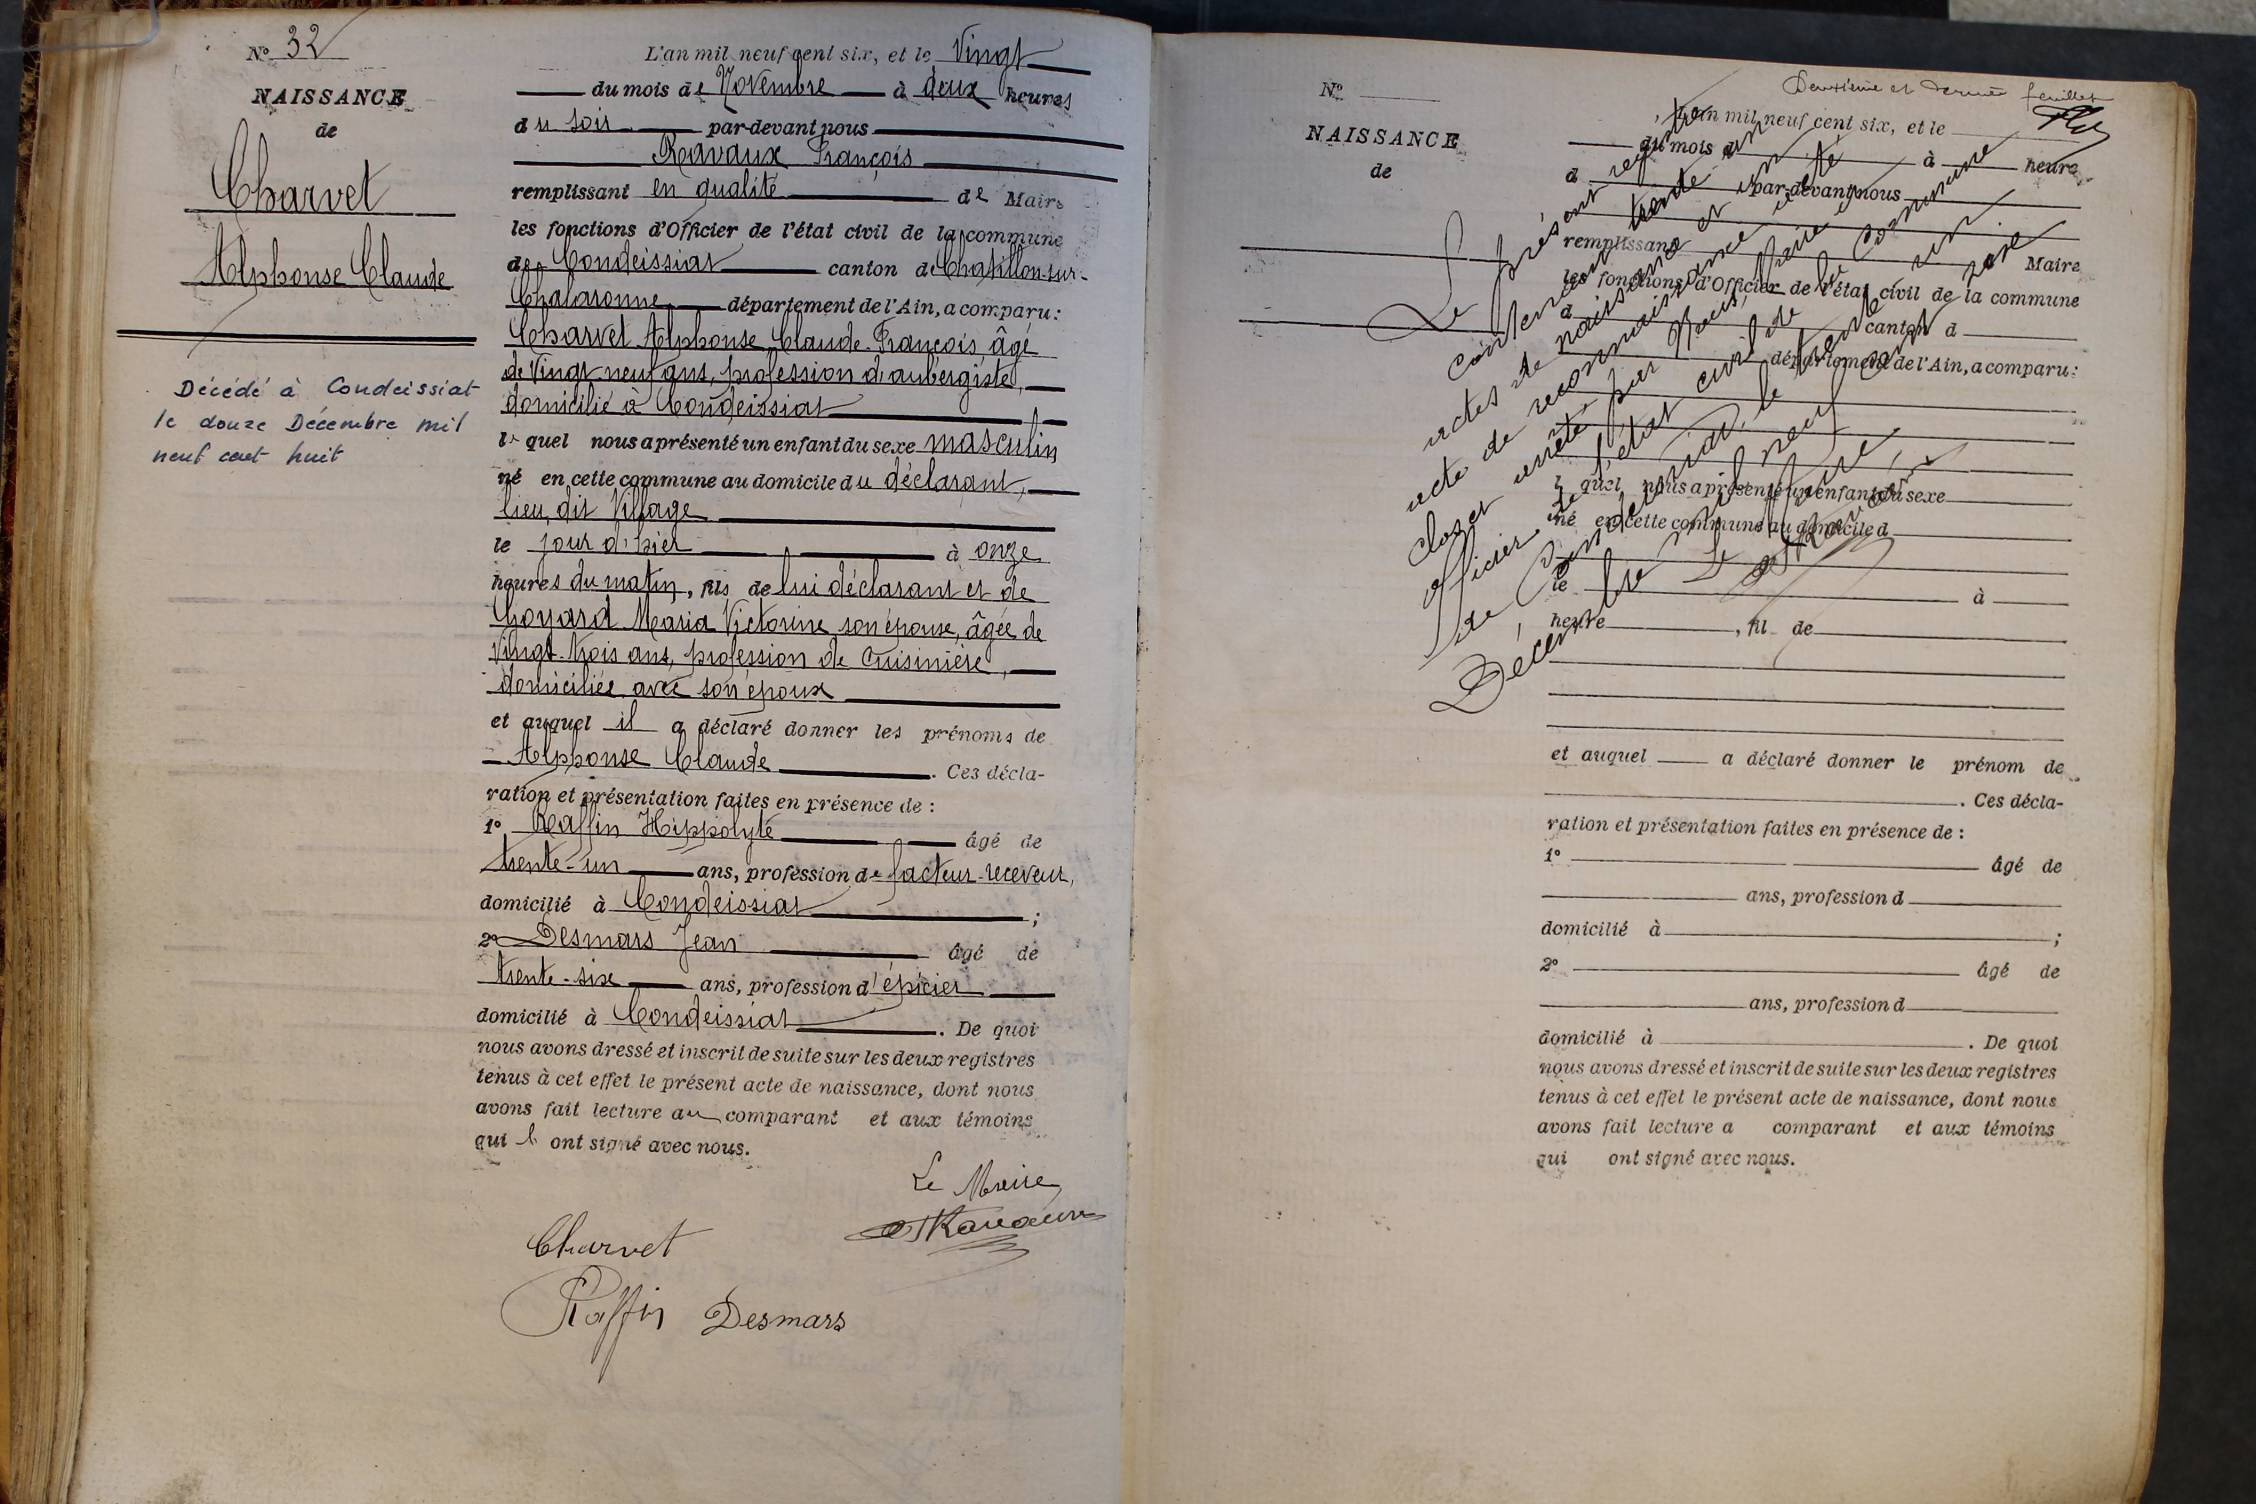 N° 32
NAISSANCE
de
Charvet
Alphonse Claude
Décédé à Condeissiat
le douze Décembre mil
neuf cent huit
L'an mil neuf cent six, et le Vingt
du mois de Novembre à deux heures
du soir par-devant nous
Ravaux François
remplissant en qualité de Maire
les fonctions d'Officier de l'état civil de la commune
de Condeissiat canton de Chatillon-sur-
Chalaronne département de l'Ain, a comparu:
Charvet Alphonse Claude François, âgé
de Vingt neuf ans, profession d'aubergiste,
domicilié à Condeissiat
lequel nous a présenté un enfant du sexe masculin
né en cette commune au domicile du déclarant,
lieu dit Village
le jour d'hier à onze
heures du matin, fils de lui déclarant et de
Goyard Maria Victorine son épouse, âgée de
Vingt-trois ans, profession de Cuisinière,
domiciliée avec son époux
et auquel il a déclaré donner les prénoms de
Alphonse Claude. Ces décla-
ration et présentation faites en présence de :
1° Raffin Hippolyte âgé de
trente-un ans, profession de facteur-receveur,
domicilié à Condeissiat ;
2° Desmars Jean âgé de
trente-six ans, profession d'épicier
domicilié à Condeissiat. De quoi
nous avons dressé et inscrit de suite sur les deux registres
tenus à cet effet le présent acte de naissance, dont nous
avons fait lecture au comparant et aux témoins
qui l' ont signé avec nous.
Le Maire
Ravaux
Charvet
Raffin Desmars
Deuxième et dernier feuillet
N°
NAISSANCE
de
L'an mil neuf cent six, et le
du mois d à heure
d par-devant nous
remplissant Maire
les fonctions d'Officier de l'état civil de la commune
d canton d
département de l'Ain, a comparu:
l quel nous a présenté un enfant du sexe
né en cette commune au domicile d
le à
heure , fil de
et auquel a déclaré donner le prénom de
. Ces décla-
ration et présentation faites en présence de :
1° âgé de
ans, profession d
domicilié à ;
2° âgé de
ans, profession d
domicilié à . De quoi
nous avons dressé et inscrit de suite sur les deux registres
tenus à cet effet le présent acte de naissance, dont nous
avons fait lecture a comparant et aux témoins
qui ont signé avec nous.
Le présent registre
contenant trente un
actes de naissance et un
acte de reconnaissance a été
clos et arrêté par Nous, Maire
officier de l'état civil de la Commune
de Condeissiat, le trente un
Décembre mil neuf cent six
Le Maire,
Ravaux